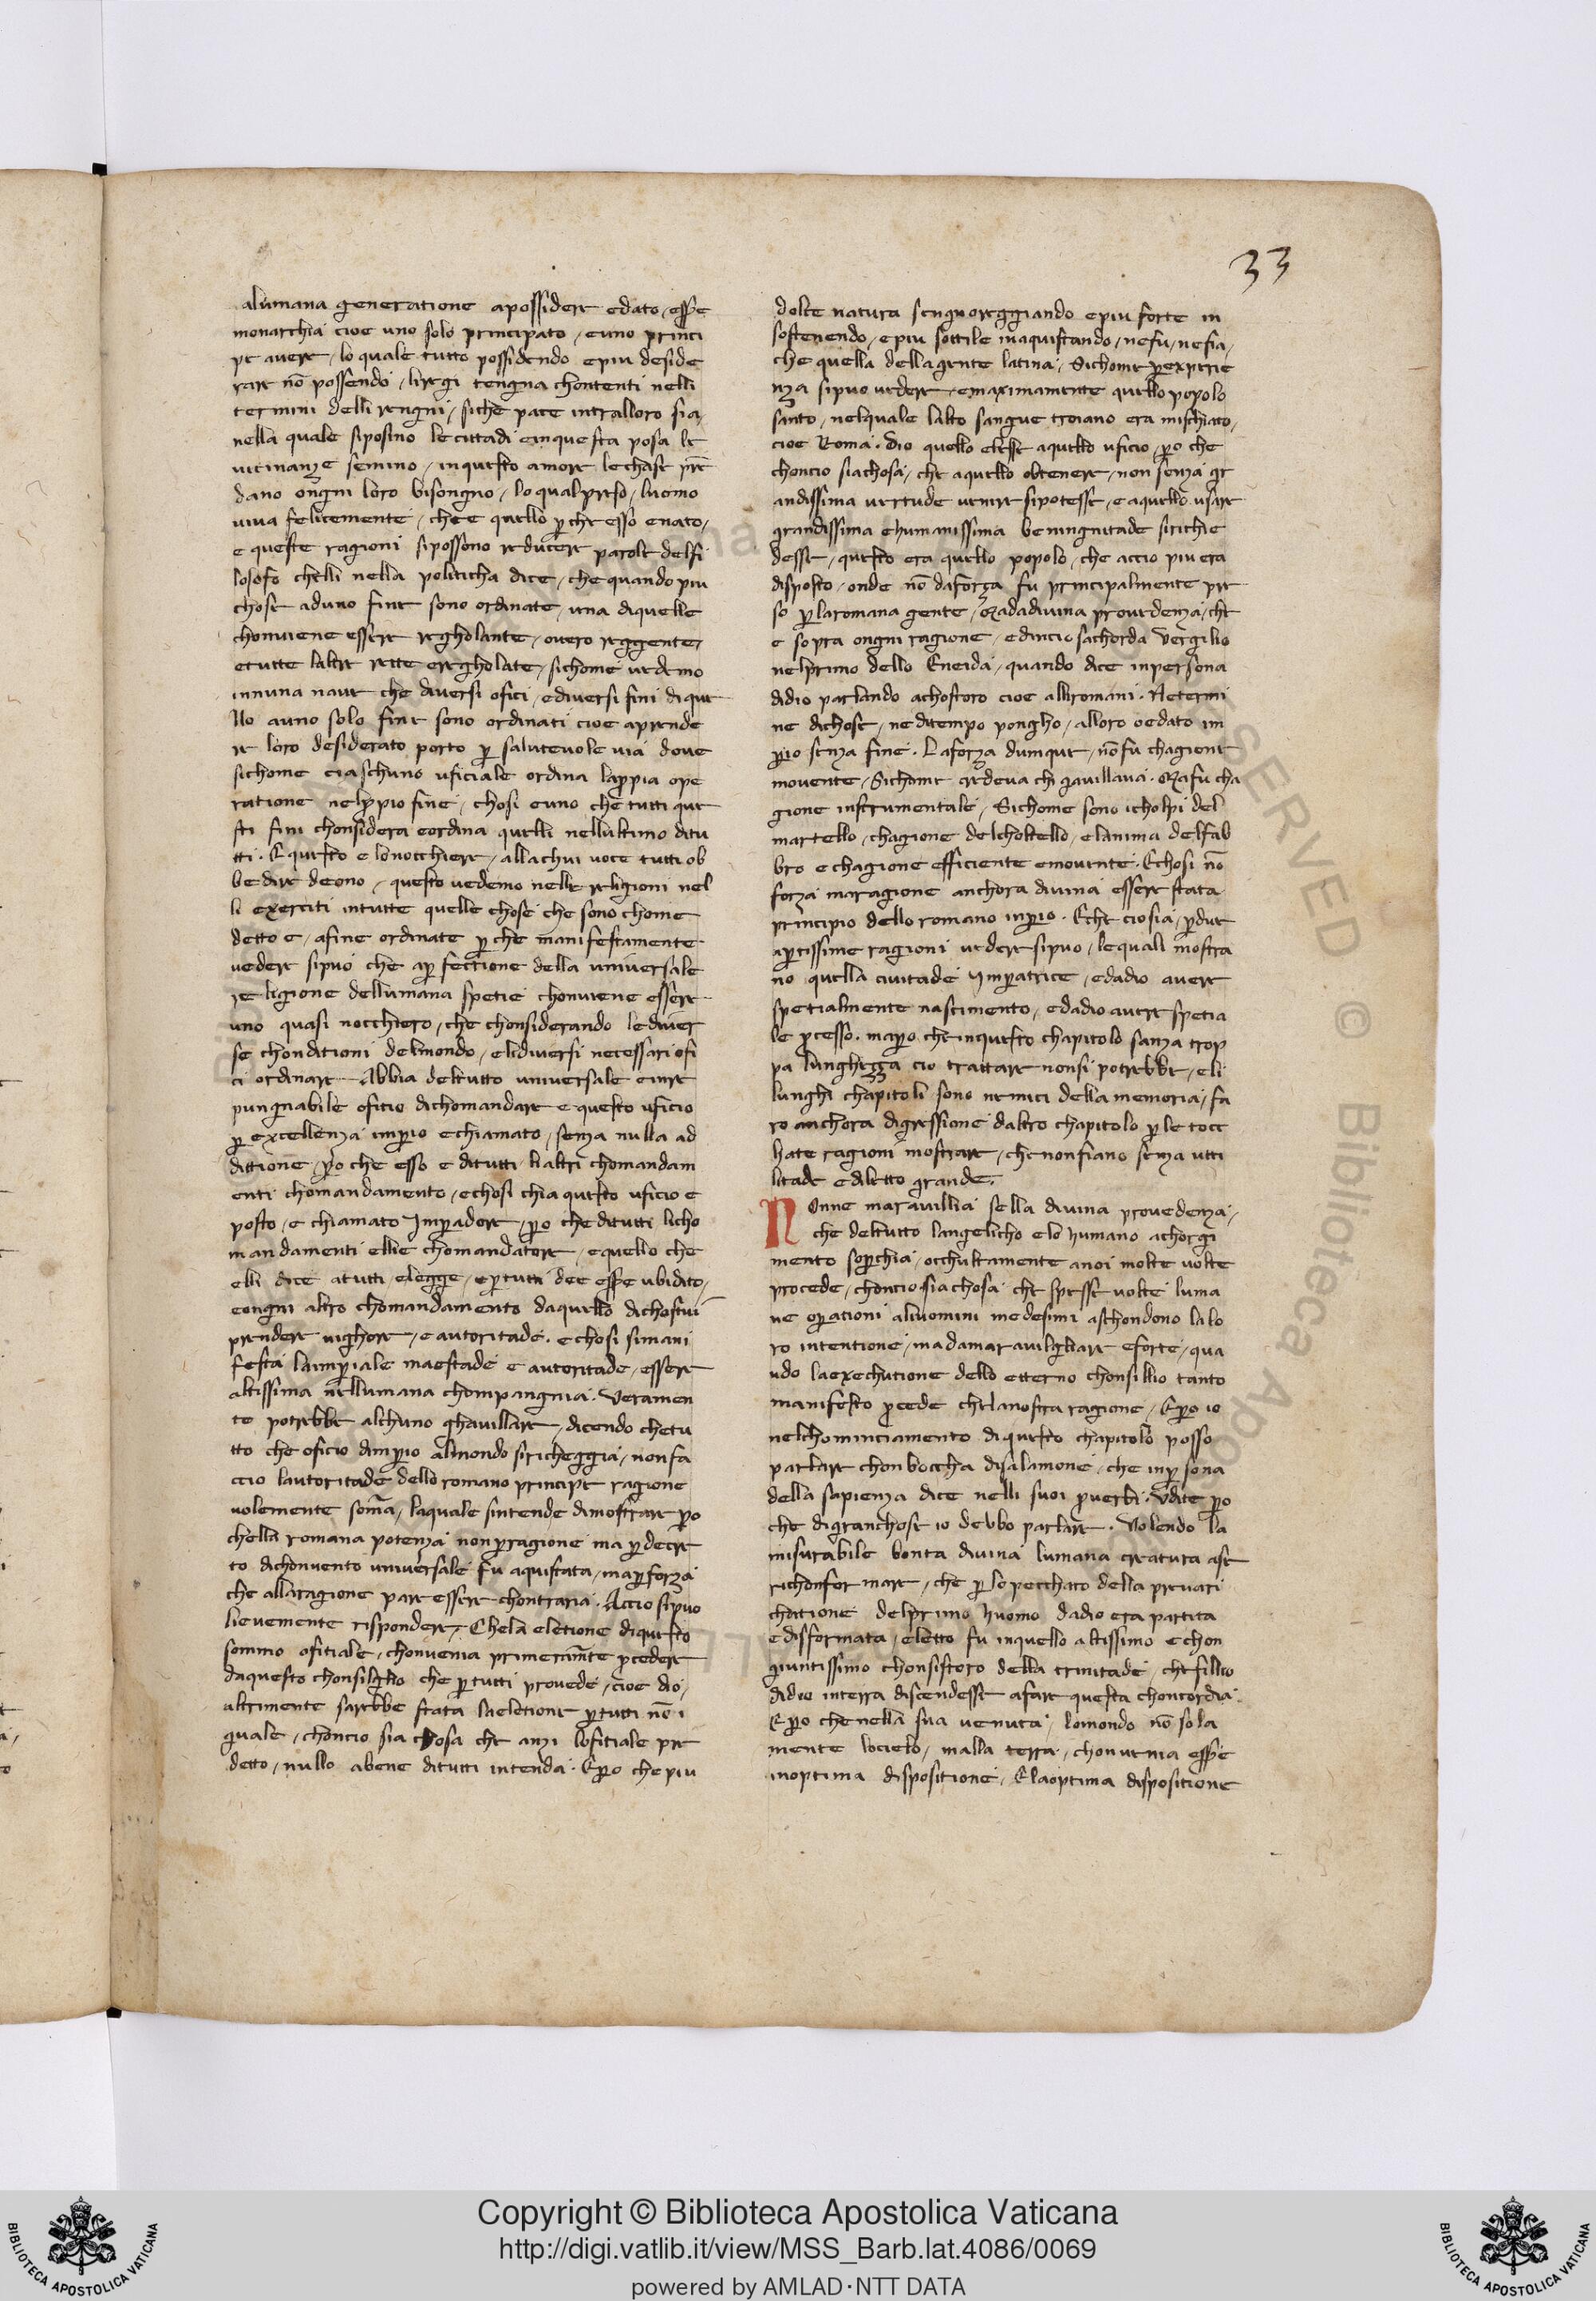 33
alumana generatione apossidere edato esse
monarchia cioe uno solo principato / euno princi
pe avere / lo quale tutto possidendo epiu deside
rare nō possendo / liregi tengna chontenti nelli
termini delli rengni / siche pace intralloro sia /
nella quale siposino lecittadi einquesta posa le
vicinanze semino / inquesto amore lechase prē
dano ongni loro bisongno / lo qualpreso / luomo
viva felicemente / chee quello ꝑ che esso enato /
e queste ragioni sipossono reducere parole delfi
losofo chelli nella politicha dice / che quando piu
chose aduno fine sono ordinate / una diquelle
chonviene essere regholante / overo reggente /
etutte laltre rette eregholate / sichome vedemo
innuna nave che diversi ofici / ediversi fini dique
llo auno solo fine sono ordinati cioe aprende
re loro desiderato porto ꝑ salutevole via dove
sichome ciaschuno uficiale ordina lapꝑia ope
ratione nelpꝑio fine / chosi euno che tutti que
sti fini chonsidera eordina quelli nellultimo ditu
tti . Equesto e lonocchiere / allachui voce tutti ob
bedire deono / questo vedemo nelle religioni nel
li exerciti intutte quelle chose che sono chome
detto e / afine ordinate ꝑ che manifestamente
vedere sipuo che aꝑfectione della universale
religione dellumana spetie chonviene essere
uno quasi nocchiero / che chonsiderando lediver
se chonditioni delmondo / elidiversi necessari ofi
ci ordinare Abbia deltutto universale einre
pungnabile oficio dichomandare e questo uficio
ꝑ excellenza imꝑio echiamato / senza nulla ad
ditione / ꝑo che esso e ditutti lialtri chomandam
enti chomandamento / echosi chia questo uficio e
posto / e chiamato Imꝑadore / ꝑo che ditutti licho
mandamenti ellie chomandatore / equello che
elli dice atutti elegge / eꝑtutti dee esse ubidito /
eongni altro chomandamento daquello dichostui
prendere vighore / e autoritade . e chosi simani
festa laimꝑiale maestade e autoritade / essere
altissima nellumana chompangnia . Veramen
te potrebbe alchuno ghavillare / dicendo chetu
tto che oficio dimꝑio almondo siricheggia / nonfa
ccio lautoritade dello romano principe ragione
volemente soma / laquale sintende dimostrare ꝑo
chella romana potenza non ꝑragione ma ꝑ decre
to dichonvento universale fu aquistata / maꝑforza
che allaragione pare essere chontraria . Accio sipuo
lievemente rispondere / Chela eletione diquesto
sommo ofitiale / chonvenia primeramēte ꝓcedere
daquesto chonsiglio che ꝑtutti provede / cioe dio /
altrimente sarebbe stata laeletione ꝑtutti nō i
quale / choncio sia chosa che anzi lofitiale pre
detto / nullo abene ditutti intendea . Eꝑo che piu
dolce natura sengnoreggiando epiu forte in
sostenendo / epiu sottile inaquistando / nefu / nefia /
che quella dellagente latina / Sichome ꝑexperie
nza sipuo vedere / emaximamente quello popolo
santo / nelquale lalto sangue troiano era mischiato /
cioe Roma . dio quello elesse aquello uficio / ꝑo che
choncio siachosa / che aquello obtenere / non senza gr
andissima vertude venire sipotesse / e aquello usare
grandissima ehumanissima beningnitade sirichie
desse / questo era quello popolo / che accio piu era
disposto / onde nō daforza fu principalmente pre
so ꝑ laromana gente / Madadivina provedenza / che
e sopra ongni ragione / edincio sachorda Vergilio
nelprimo dello Eneida / quando dice inpersona
didio parlando achostoro cioe alliromani . Netermi
ne dichose / ne ditempo pongho / alloro oedato im
ꝑio senza fine . Laforza dumque / nōfu chagione
movente / Sichome credeva chi gavillava . Mafu cha
gione instrumentale / Sichome sono icholpi del
martello / chagione delcholtello / elanima delfab
bro e chagione efficiente emovente . Echosi nō
forza maragione anchora divina essere stata
principio dello romano inꝑio . Eche ciosia / ꝑdue
aꝑtissime ragioni vedere sipuo / lequali mostra
no quella civitade ymꝑatrice / edadio avere
spetialmente nascimento / edadio avere spetia
le ꝓcesso . maꝑo che inquesto chapitolo sanza trop
pa lunghezza cio trattare nonsi potrebbe / eli
lunghi chapitoli sono nemici della memoria / fa
ro anchora digressione daltro chapitolo ꝑ le tocc
hate ragioni mostrare / chenonfiano senza uti
litade ediletto grande .
Nonne maravillia sella divina provedenza /
che deltutto langelicho elo humano achorgi
mento soꝑchia / occhultamente anoi molte volte
procede / choncio siachosa che spesse volte luma
ne oꝑationi aliuomini medesimi aschondono lalo
ro intentione / madamaravigliare eforte / qua
ndo laexechutione dello etterno chonsillio tanto
manifesto ꝓcede chelanostra ragione / Eꝑo io
nelchominciamento diquesto chapitolo posso
parlare chonboccha disalamone / che inꝑsona
della sapienza dice nelli suoi ꝓverbi . Udite ꝑo
che digranchose io debbo parlare . Volendo la
misurabile bonta divina lumana creatura ase
richonformare / che ꝑ lo pecchato della prevari
chatione delprimo huomo dadio era partita
edisformata / eletto fu inquello altissimo echon
giuntissimo chonsistoro della trinitade / che fillio
didio interra discendesse afare questa chontordia .
Eꝑo chenella sua venuta / lomondo nō sola
mente locielo / malla terra / chonvenia esse
inoptima dispositione / Elaoptima dispositione
Copyright © Biblioteca Apostolica Vaticana
http://digi.vatlib.it/view/MSS_Barb.lat.4086/0069
powered by AMLAD·NTT DATA
BIBLIOTECA APOSTOLICA VATICANA
BIBLIOTECA APOSTOLICA VATICANA